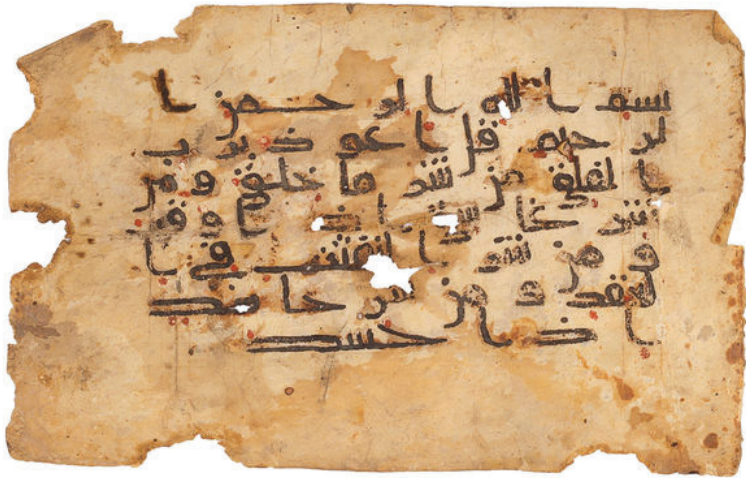 بسم الله الرحمن ا
لرحيم قل اعوذ برب
الفلق من شر ما خلق و من
شر غاسق اذا وق
ب و من شر النفثت في ا
لعقد و من شر حاسد
اذا حسد